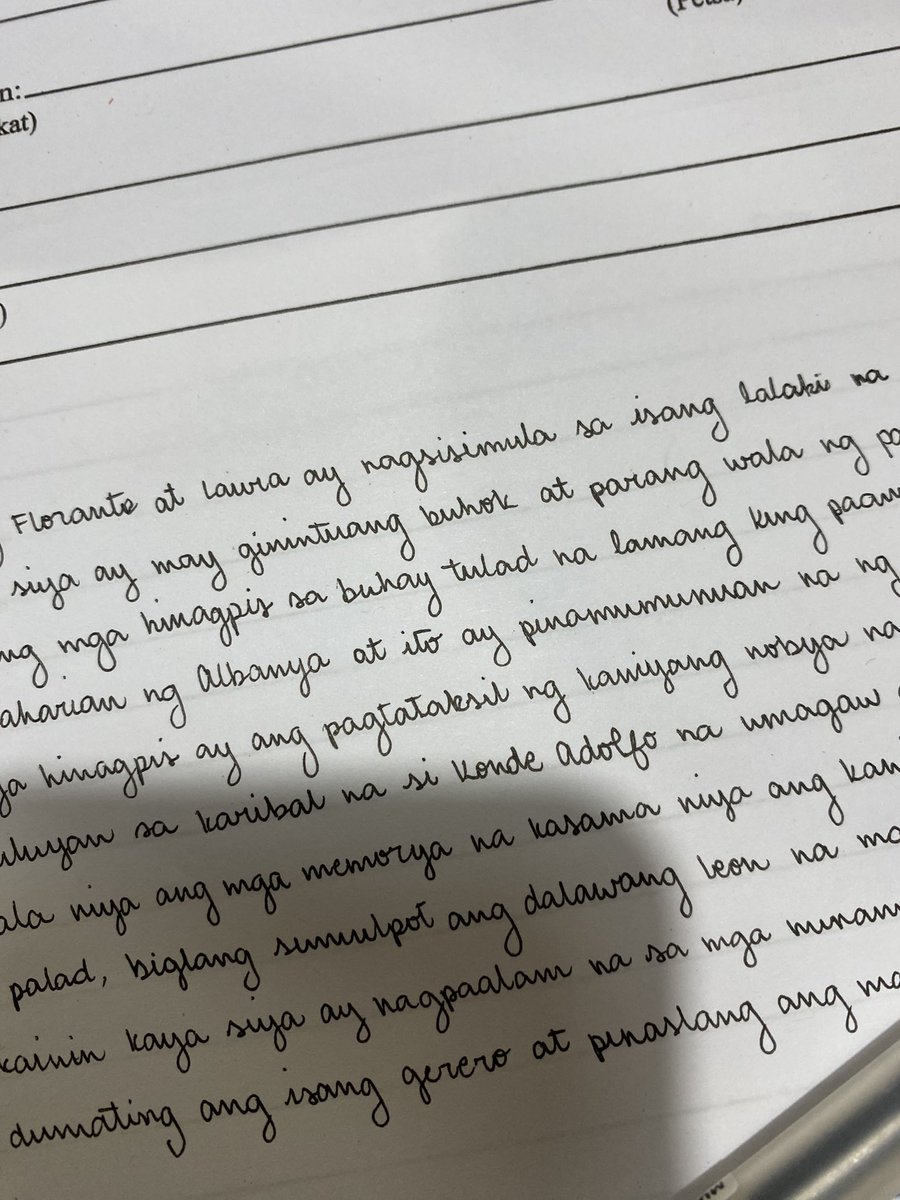 n:
kat)
)
Florante at Laura ay nagsisimula sa isang lalaki na
siya ay may ginintuang buhok at parang wala ng pa
ng mga hinagpis sa buhay tulad na lamang kung paan
aharian ng Albanya at ito ay pinamumunuan na ng
ya hinagpis ay ang pagtataksil ng kaniyang nobya na
uluyan sa karibal na si Konde Adolfo na umagaw
ala niya ang mga memorya na kasama niya ang kani
palad, biglang sumulpot ang dalawang leon na ma
kainin kaya siya ay nagpaalam na sa mga minam
dumating ang isang gerero at pinaslang ang ma